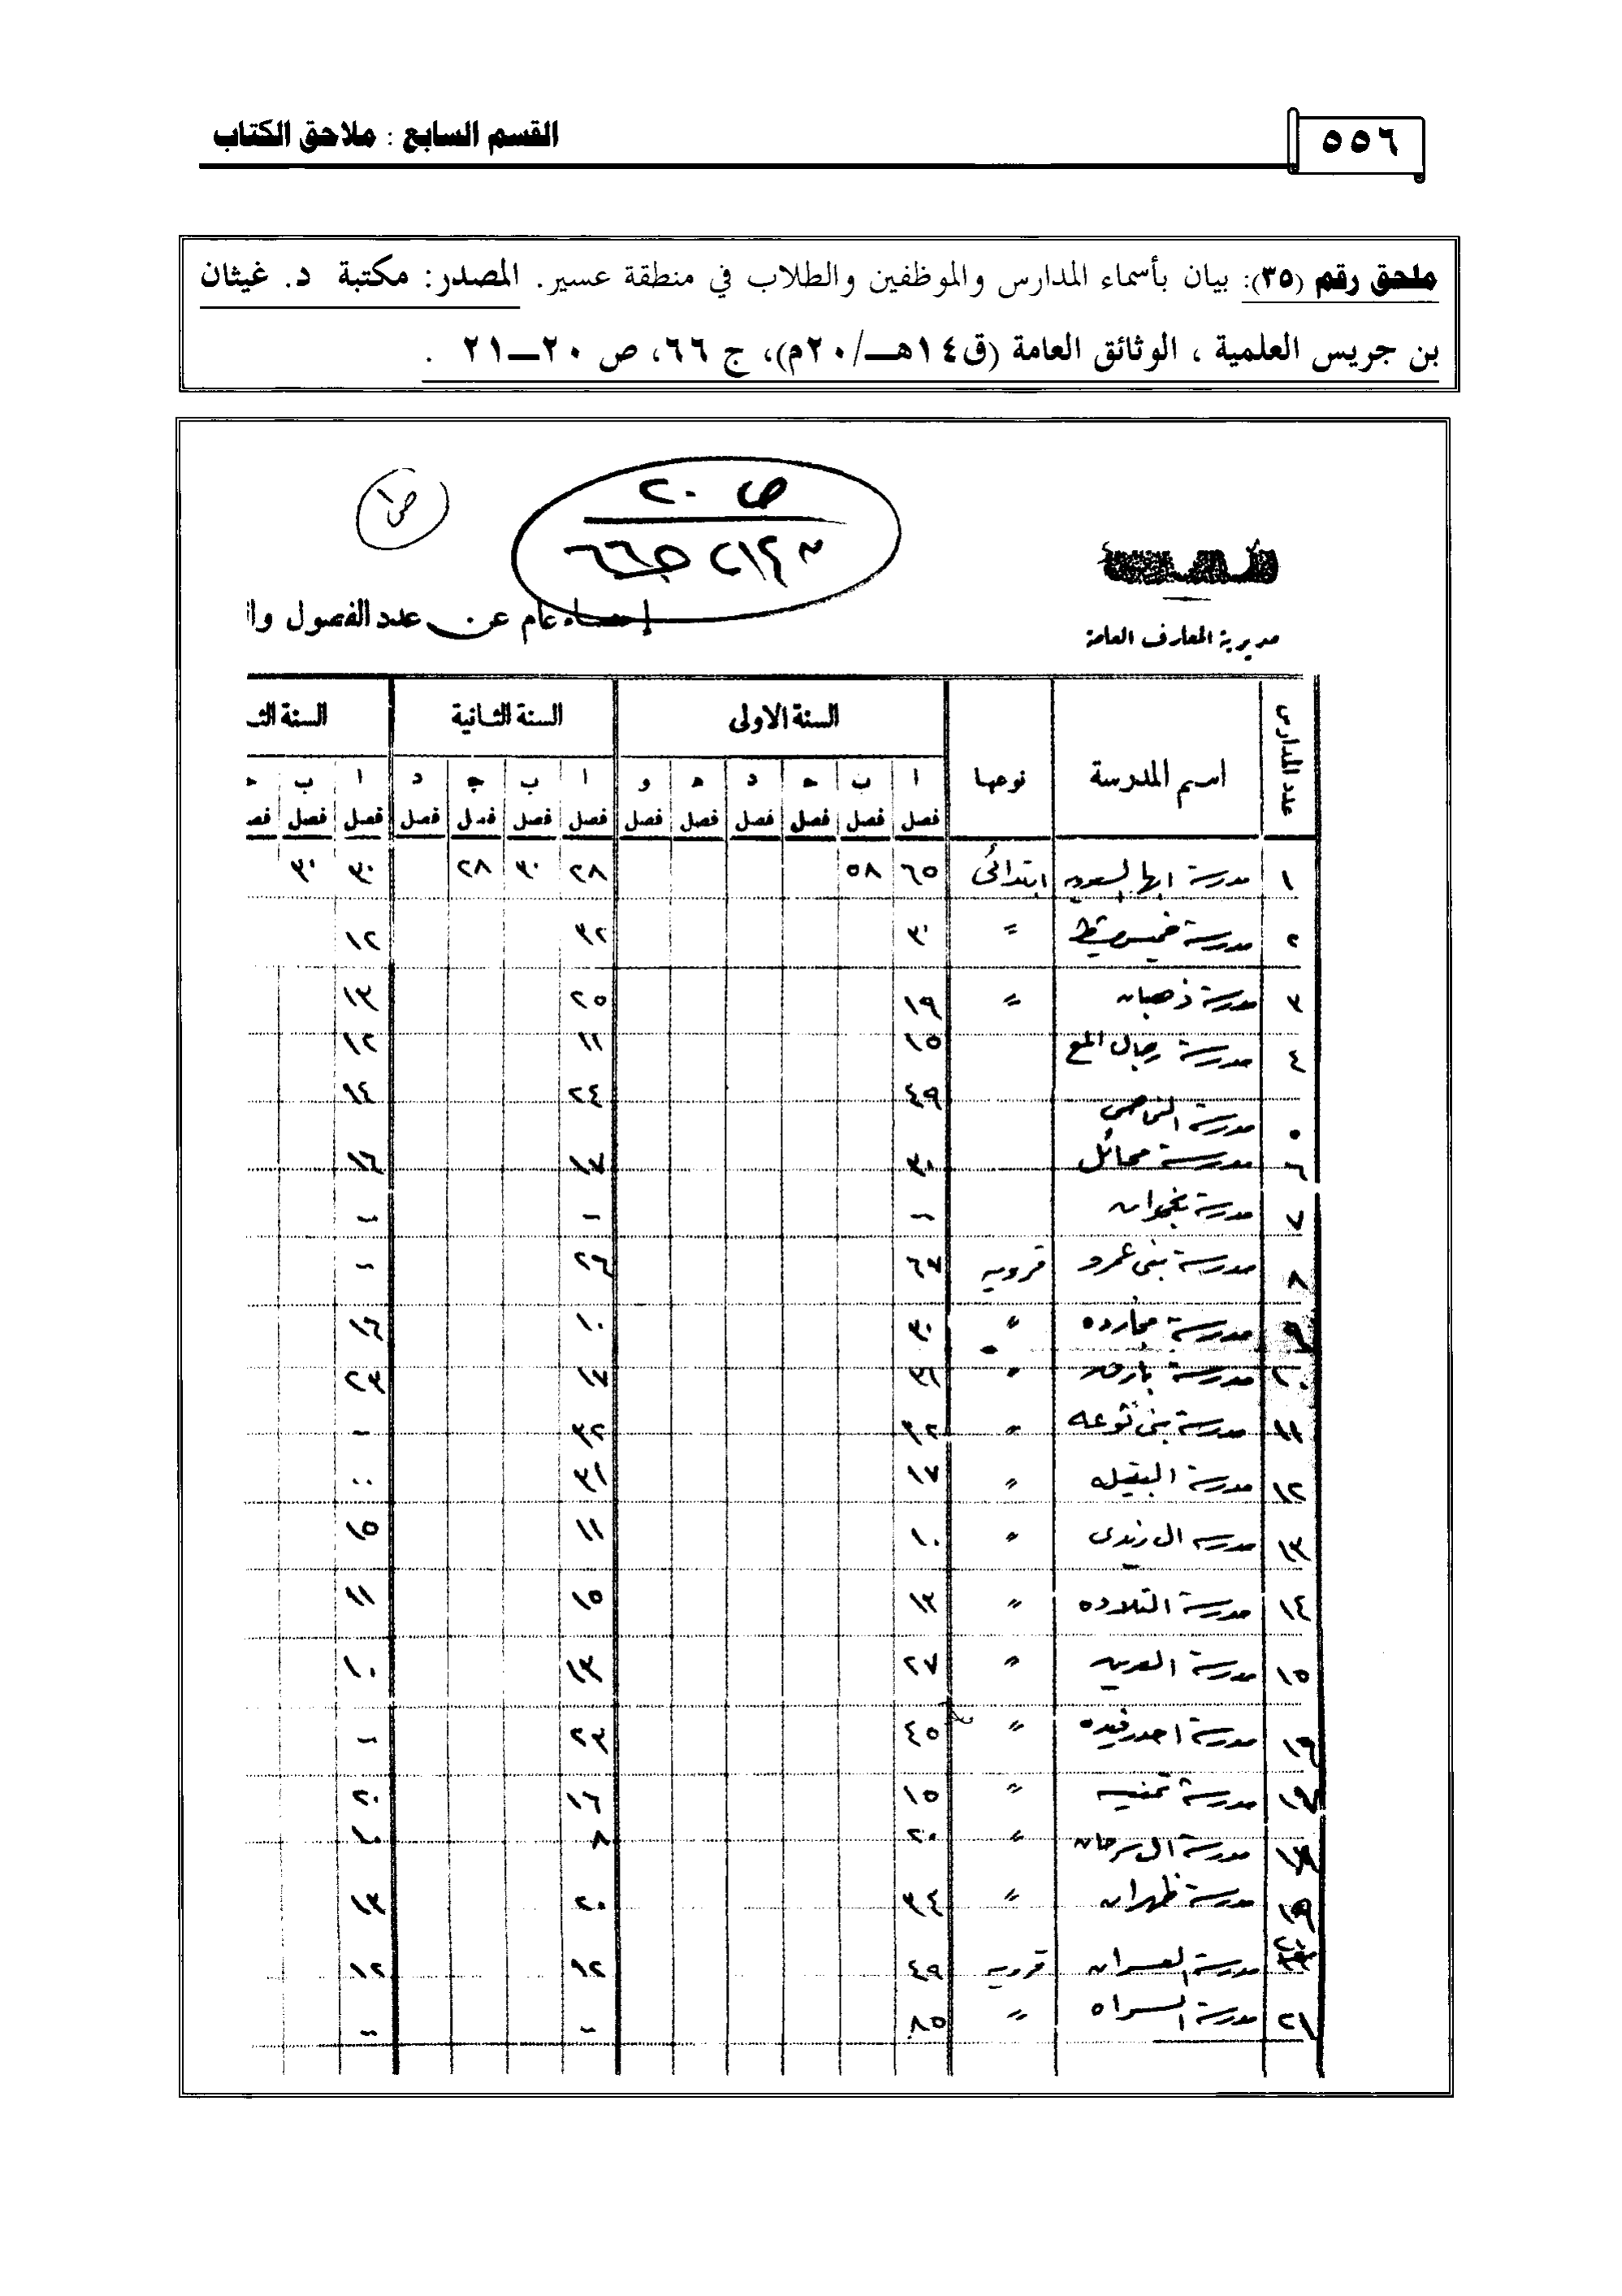 ٥٥٦
القسم السابع : ملاحق الكتاب
ملحق رقم (٣٥): بيان بأسماء المدارس والموظفين والطلاب في منطقة عسير. المصدر: مكتبة د. غيثان
بن جريس العلمية ، الوثائق العامة (ق١٤هـ/٢٠م)، ج ٦٦، ص ٢٠-٢١ .
ص ٢٠
مديرية المعارف العامة
إحصاء عام عن عدد الفصول وا
عدد المدارس اسم المدرسة نوعها السنة الاولى السنة الثانية السنة الث
ا ب ح د ه و ا ب ج د ا ب ح
فصل فصل فصل فصل فصل فصل فصل فصل فصل فصل فصل فصل فص
١ مدرسة ابها السعوديه ابتدائى ٦٥ ٥٨ ٢٨ ٣٠ ٢٨ ٣٠ ٣٠
٢ مدرسة خميس مشيط " ٣٠ ٣٢ ١٢
٣ مدرسة ذهبان " ١٩ ٢٥ ١٣
٤ مدرسة رجال المع ١٥ ١١ ١٢
٥ مدرسة النماص ٤٩ ٢٤ ١٤
٦ مدرسة محائل ٣٠ ١٧ ١٦
٧ مدرسة - - -
٨ مدرسة بنى عمرو قرويه ٦٧ ٢٦ -
٩ مدرسة مجارده " ٣٠ ١٠ ١٦
١٠ مدرسة بارق " ٣١ ١٧ ٢٣
١١ مدرسة بنى ثوعه " ٣٢ ٣٢ -
١٢ مدرسة " ١٧ ٣١
١٣ مدرسه ال زيدى " ١٠ ١١ ١٥
١٤ مدرسة التلاده " ١٣ ١٥ ١١
١٥ مدرسة العرين " ٢٧ ١٣ ١٠
١٦ مدرسة احد رفيده " ٤٥ ٢٣ -
١٧ مدرسة تمنيه " ١٥ ١٦ ٢٠
١٨ مدرسة ال سرحان " ٢٠ ٨ ١٠
١٩ مدرسة ظهران " ٣٤ ٢٠ ١٣
مدرسة العسران قرويه ٤٩ ١٢ ١٢
٢١ مدرسة السراه " ٨٥ - -